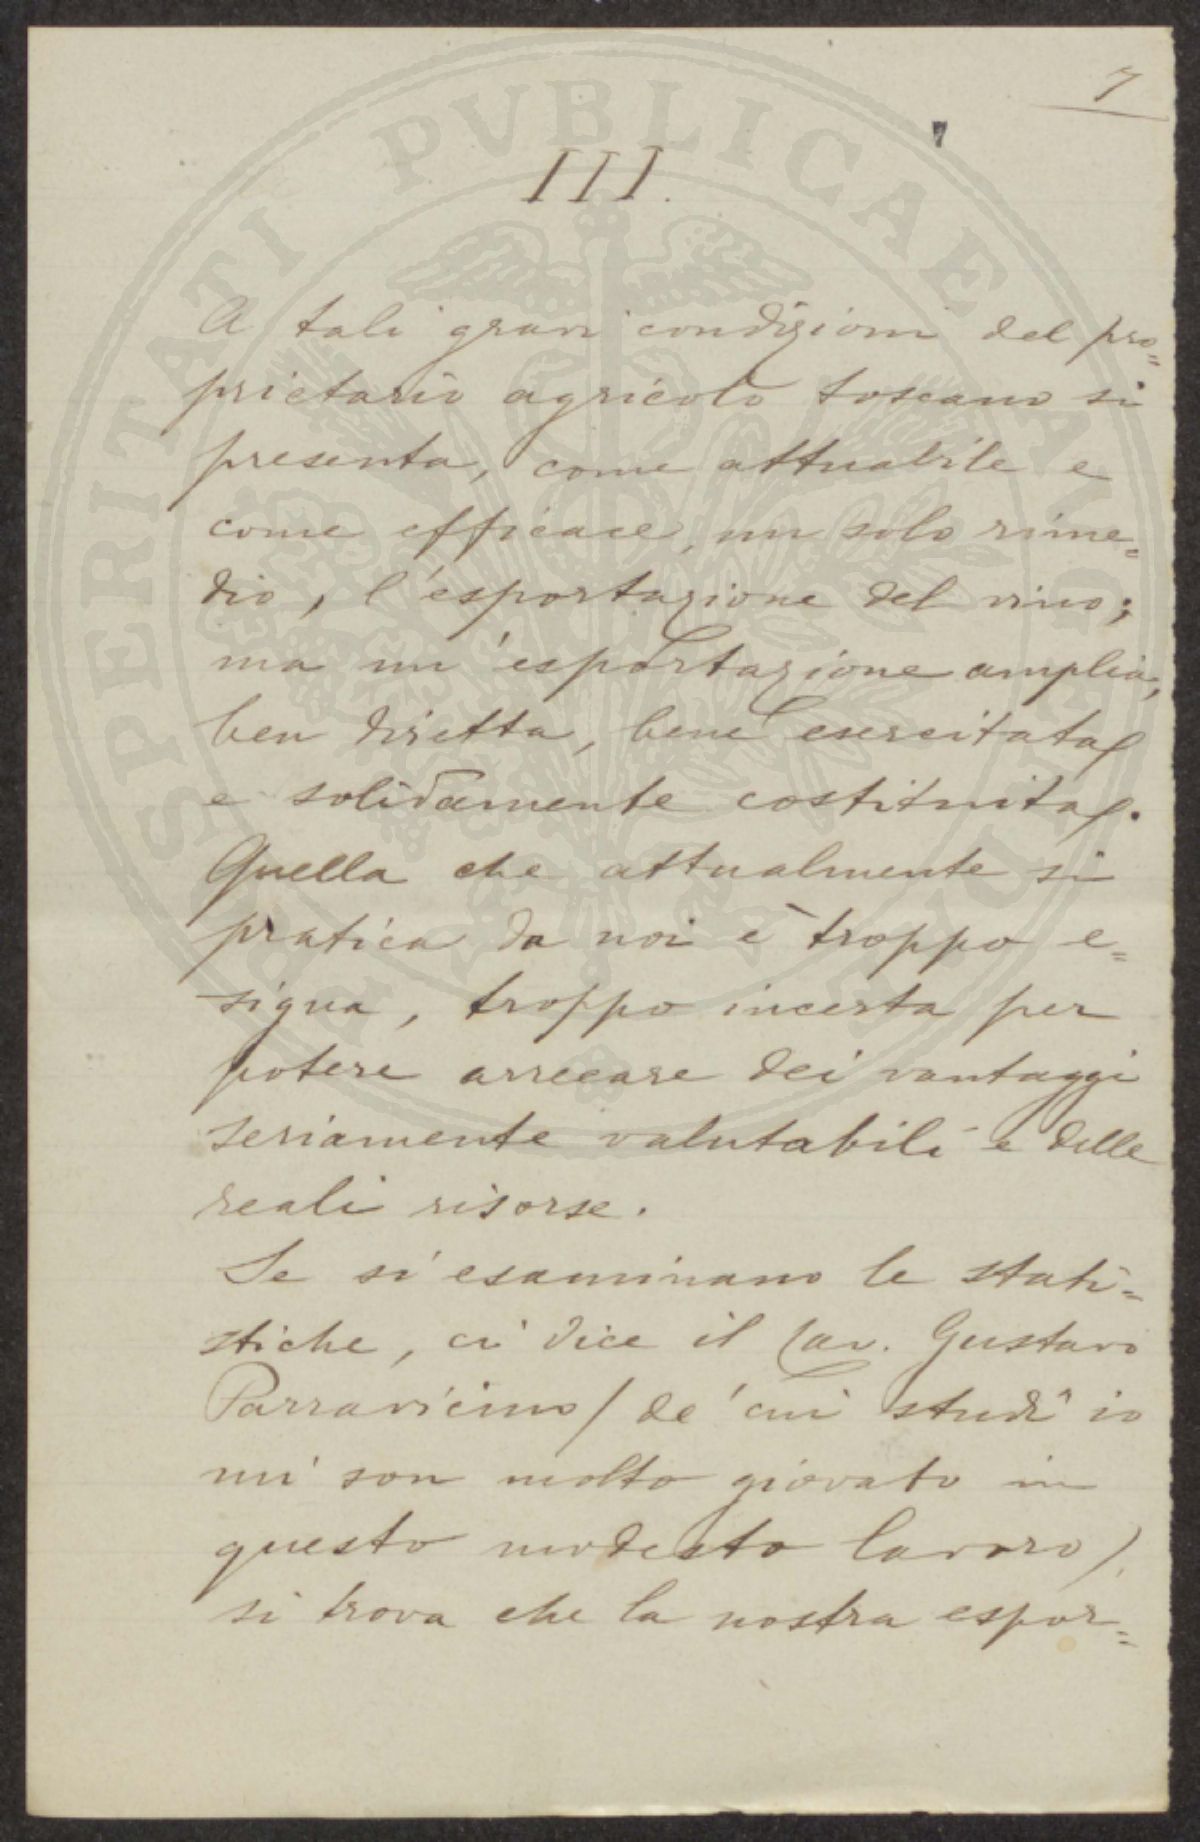 7
7
III.
A tali gravi condizioni del pro=
prietario agricolo toscano si
presenta, come attuabile e
come efficace, un solo rime=
dio, l'esportazione del vino;
ma un'esportazione amplia,
ben diretta, bene esercitata
e solidamente costituita.
Quella che attualmente si
pratica da noi è troppo e=
sigua, troppo incerta per
potere arrecare dei vantaggi
seriamente valutabili e delle
reali risorse.
Se si esaminano le stati=
stiche, ci dice il Cav. Gustavo
Parravicino (de' cui studî io
mi son molto giovato in
questo modesto lavoro),
si trova che la nostra espor=
PROSPERITATI PVBLICAE AVGENDAE